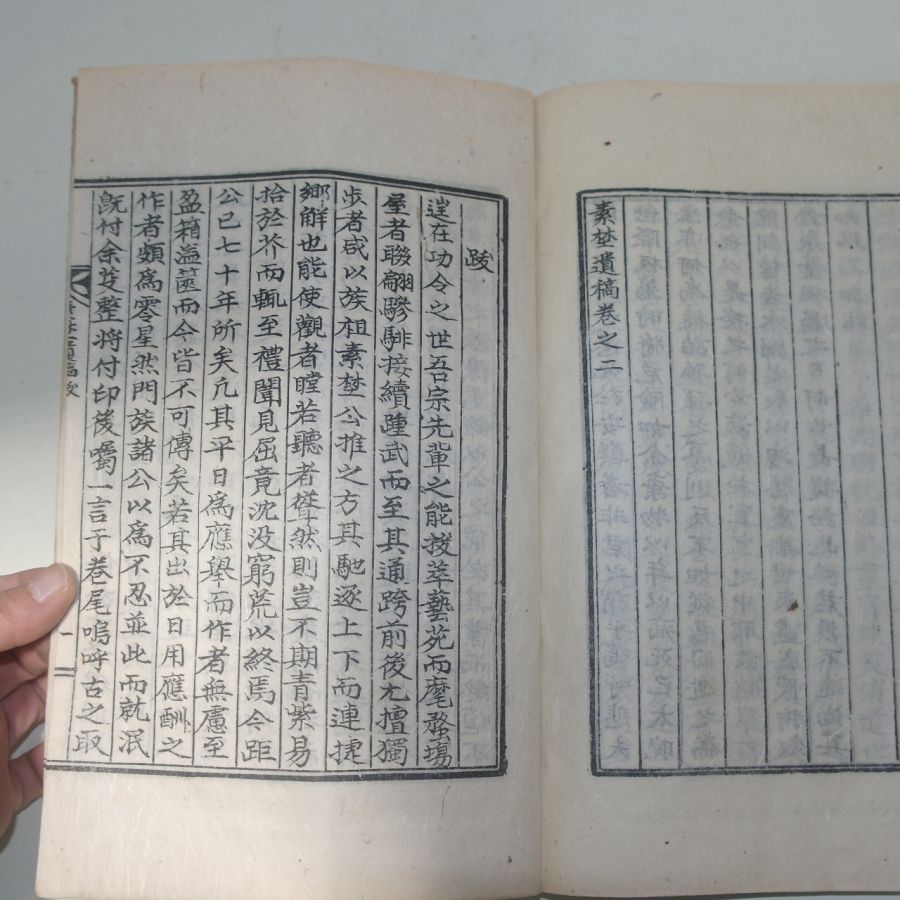 素埜遺稿卷之二
跋
逞在功令之世吾宗先輩之能拔萃藝苑而麾螯塲
屋者聯翩驂騑接續踵武而至其通跨前後尤擅獨
步者咸以族祖素埜公推之方其馳逐上下而連捷
鄉解也能使觀者瞠若聽者聳然則豈不期青紫易
拾於芥而輒至禮闈見屈竟沈没窮荒以終焉今距
公已七十年所矣凢其平日爲應擧而作者無慮至
盈箱溢篋而今皆不可傳矣若其出於日用應酬之
作者頗爲零星然門族諸公以爲不忍並此而就泯
旣付余芟整將付印後囑一言于卷尾嗚呼古之取
一